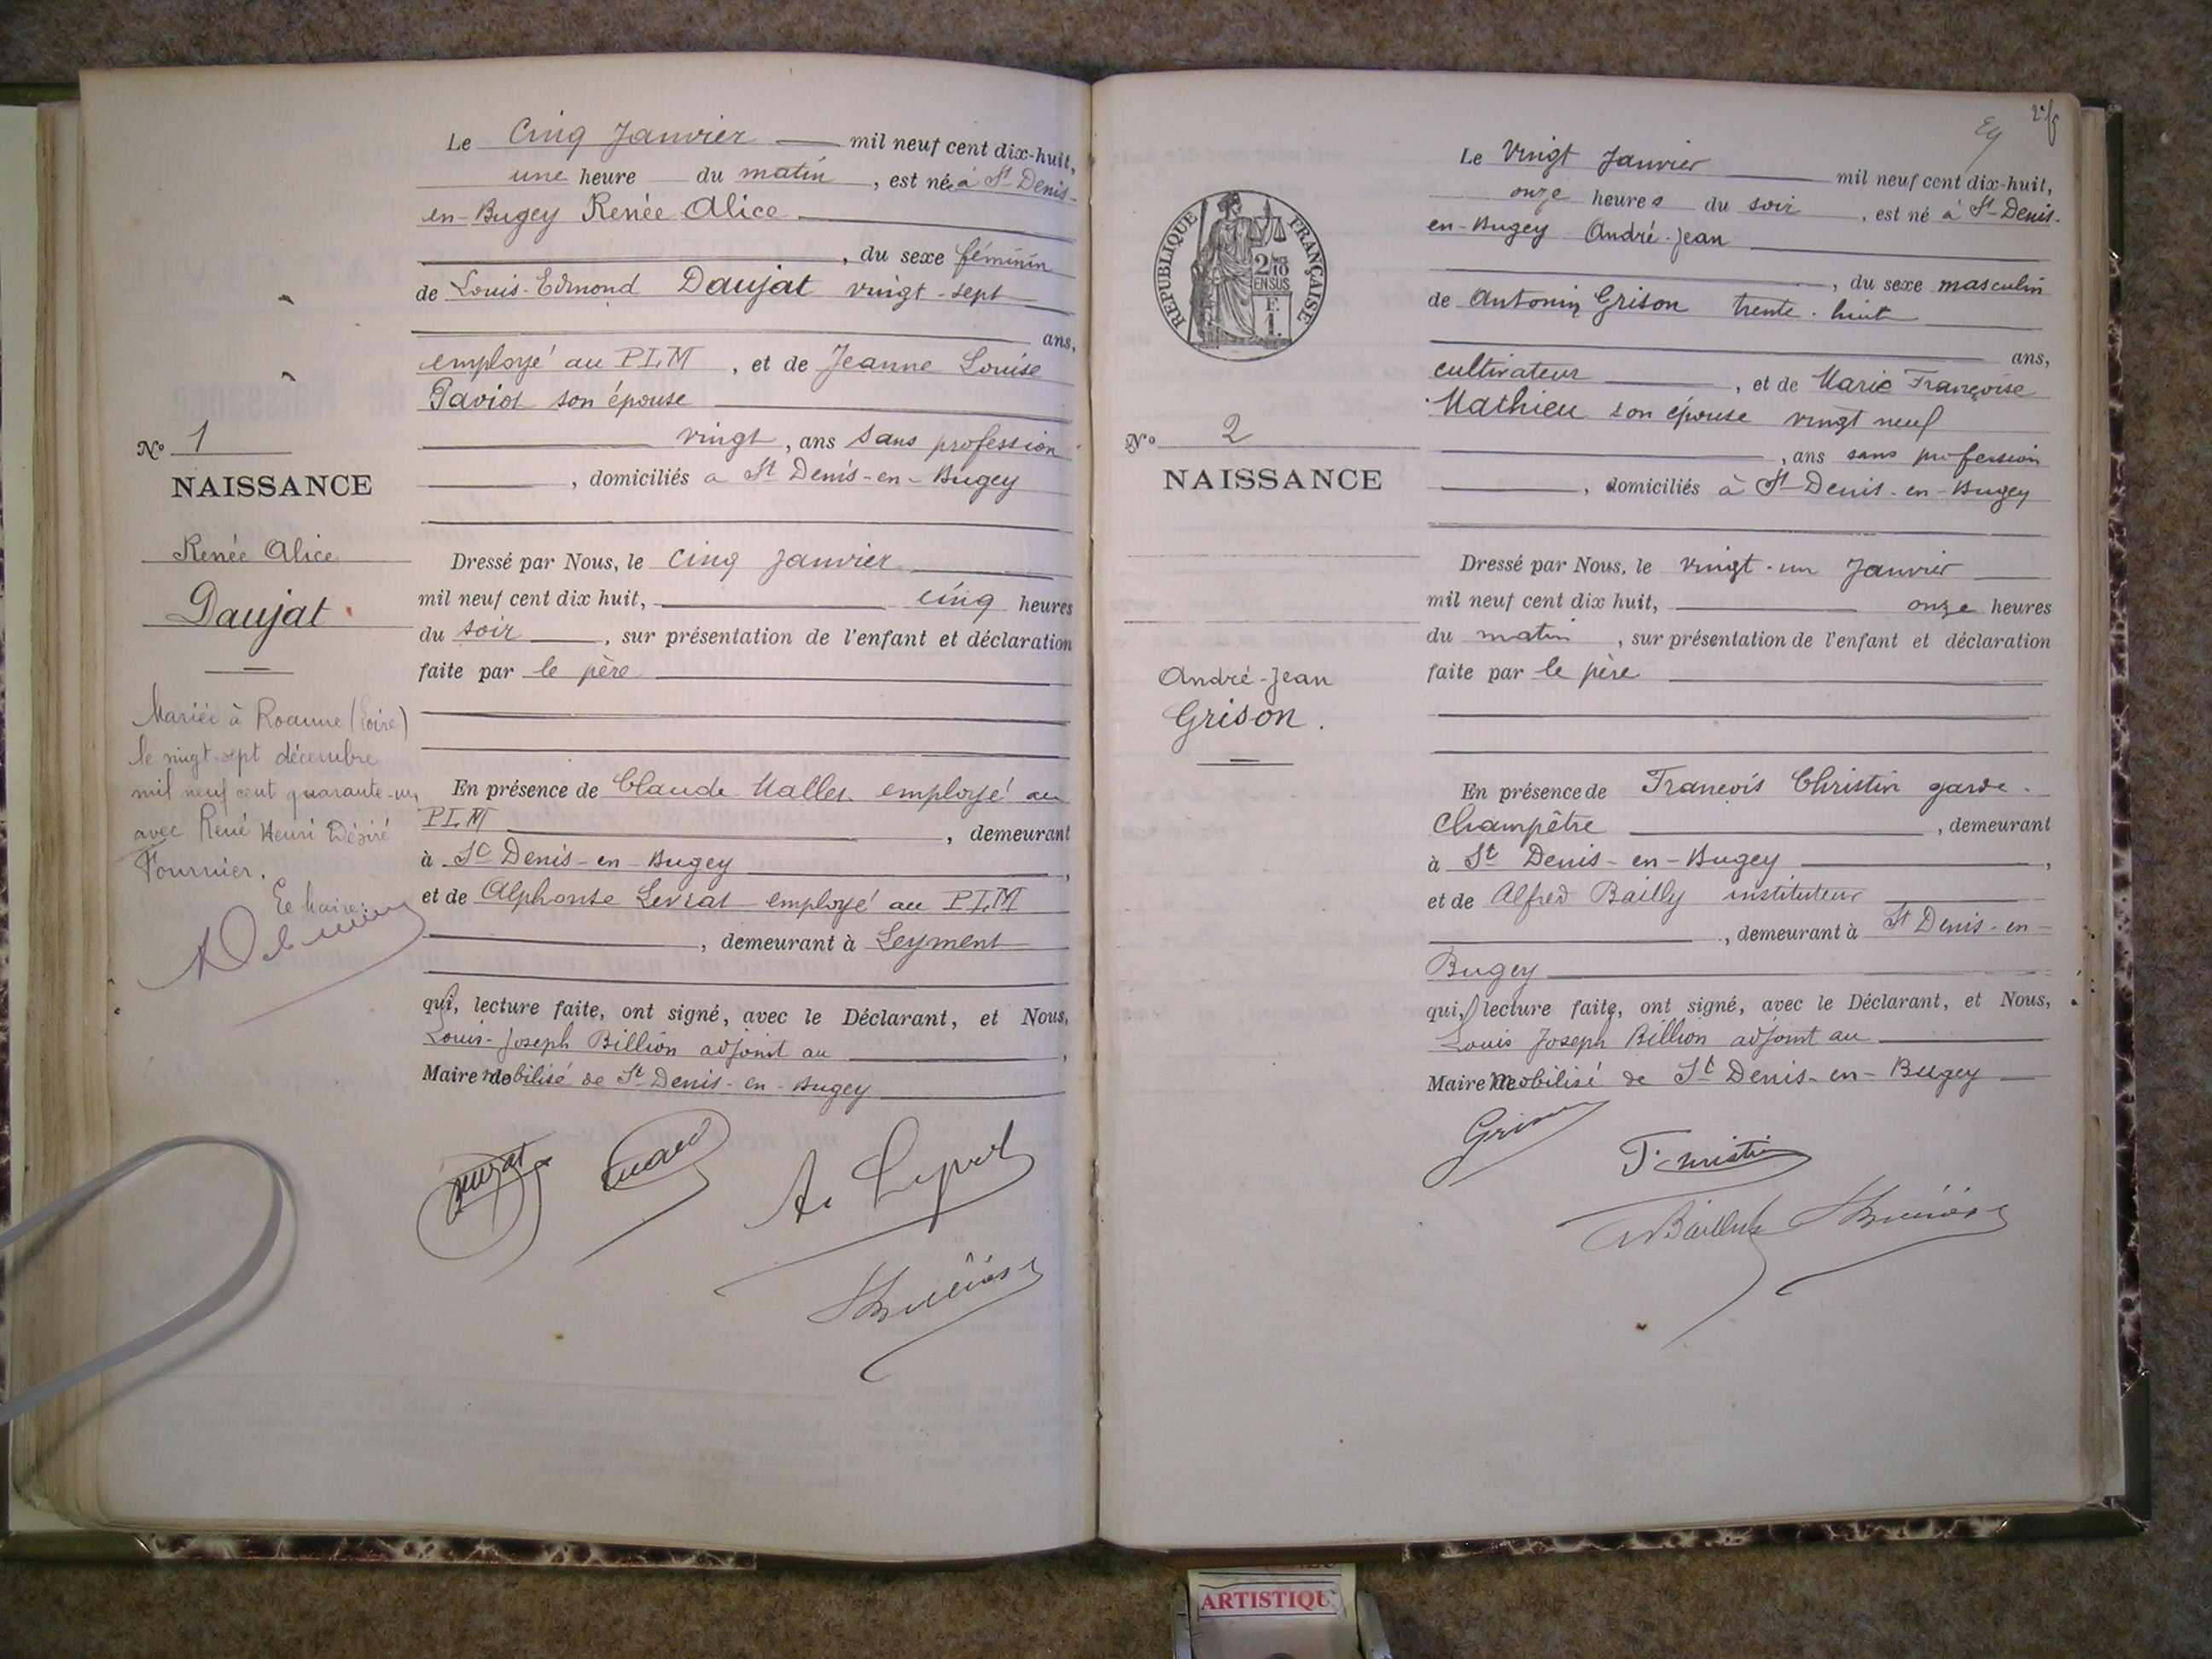 Le Cinq Janvier mil neuf cent dix-huit,
une heure du matin, est née à St Denis-
en-Bugey Renée Alice
, du sexe féminin
de Louis-Edmond Daujat vingt-sept
ans,
employé au PLM, et de Jeanne Louise
son épouse
vingt, ans sans profession
, domiciliés à St Denis-en-Bugey
No 1
NAISSANCE
Renée Alice
Daujat
Dressé par Nous, le cinq janvier
mil neuf cent dix huit, cinq heures
du soir, sur présentation de l'enfant et déclaration
faite par le père
Mariée à Roanne (Loire)
le vingt-sept décembre
mil neuf cent quarante-un
avec René Henri Désiré
Fournier.
Le Maire:
En présence de Claude employé au
PLM, demeurant
à St Denis-en-Bugey,
et de Alphonse Levrat employé au PLM
, demeurant à Leyment
qui, lecture faite, ont signé, avec le Déclarant, et Nous,
Louis-Joseph Billion adjoint au,
Maire mobilisé de St Denis-en-Bugey
Le Vingt Janvier mil neuf cent dix-huit,
onze heures du soir, est né à St-Denis-
en-Bugey André-Jean
, du sexe masculin
de Antonin Grison trente-huit
ans,
cultivateur, et de Marie Françoise
Mathieu son épouse vingt neuf
, ans sans profession
, domiciliés à St-Denis-en-Bugey
REPUBLIQUE FRANÇAISE
2/10
EN SUS
F.
1.
No 2
NAISSANCE
André-Jean
Grison.
Dressé par Nous, le vingt-un Janvier
mil neuf cent dix huit, onze heures
du matin, sur présentation de l'enfant et déclaration
faite par le père
En présence de François Christin garde-
Champêtre, demeurant
à St Denis-en-Bugey,
et de Alfred Bailly instituteur
, demeurant à St Denis-en-
Bugey
qui, lecture faite, ont signé, avec le Déclarant, et Nous,
Louis Joseph Billion adjoint au
Maire mobilisé de St Denis-en-Bugey
ARTISTIQU